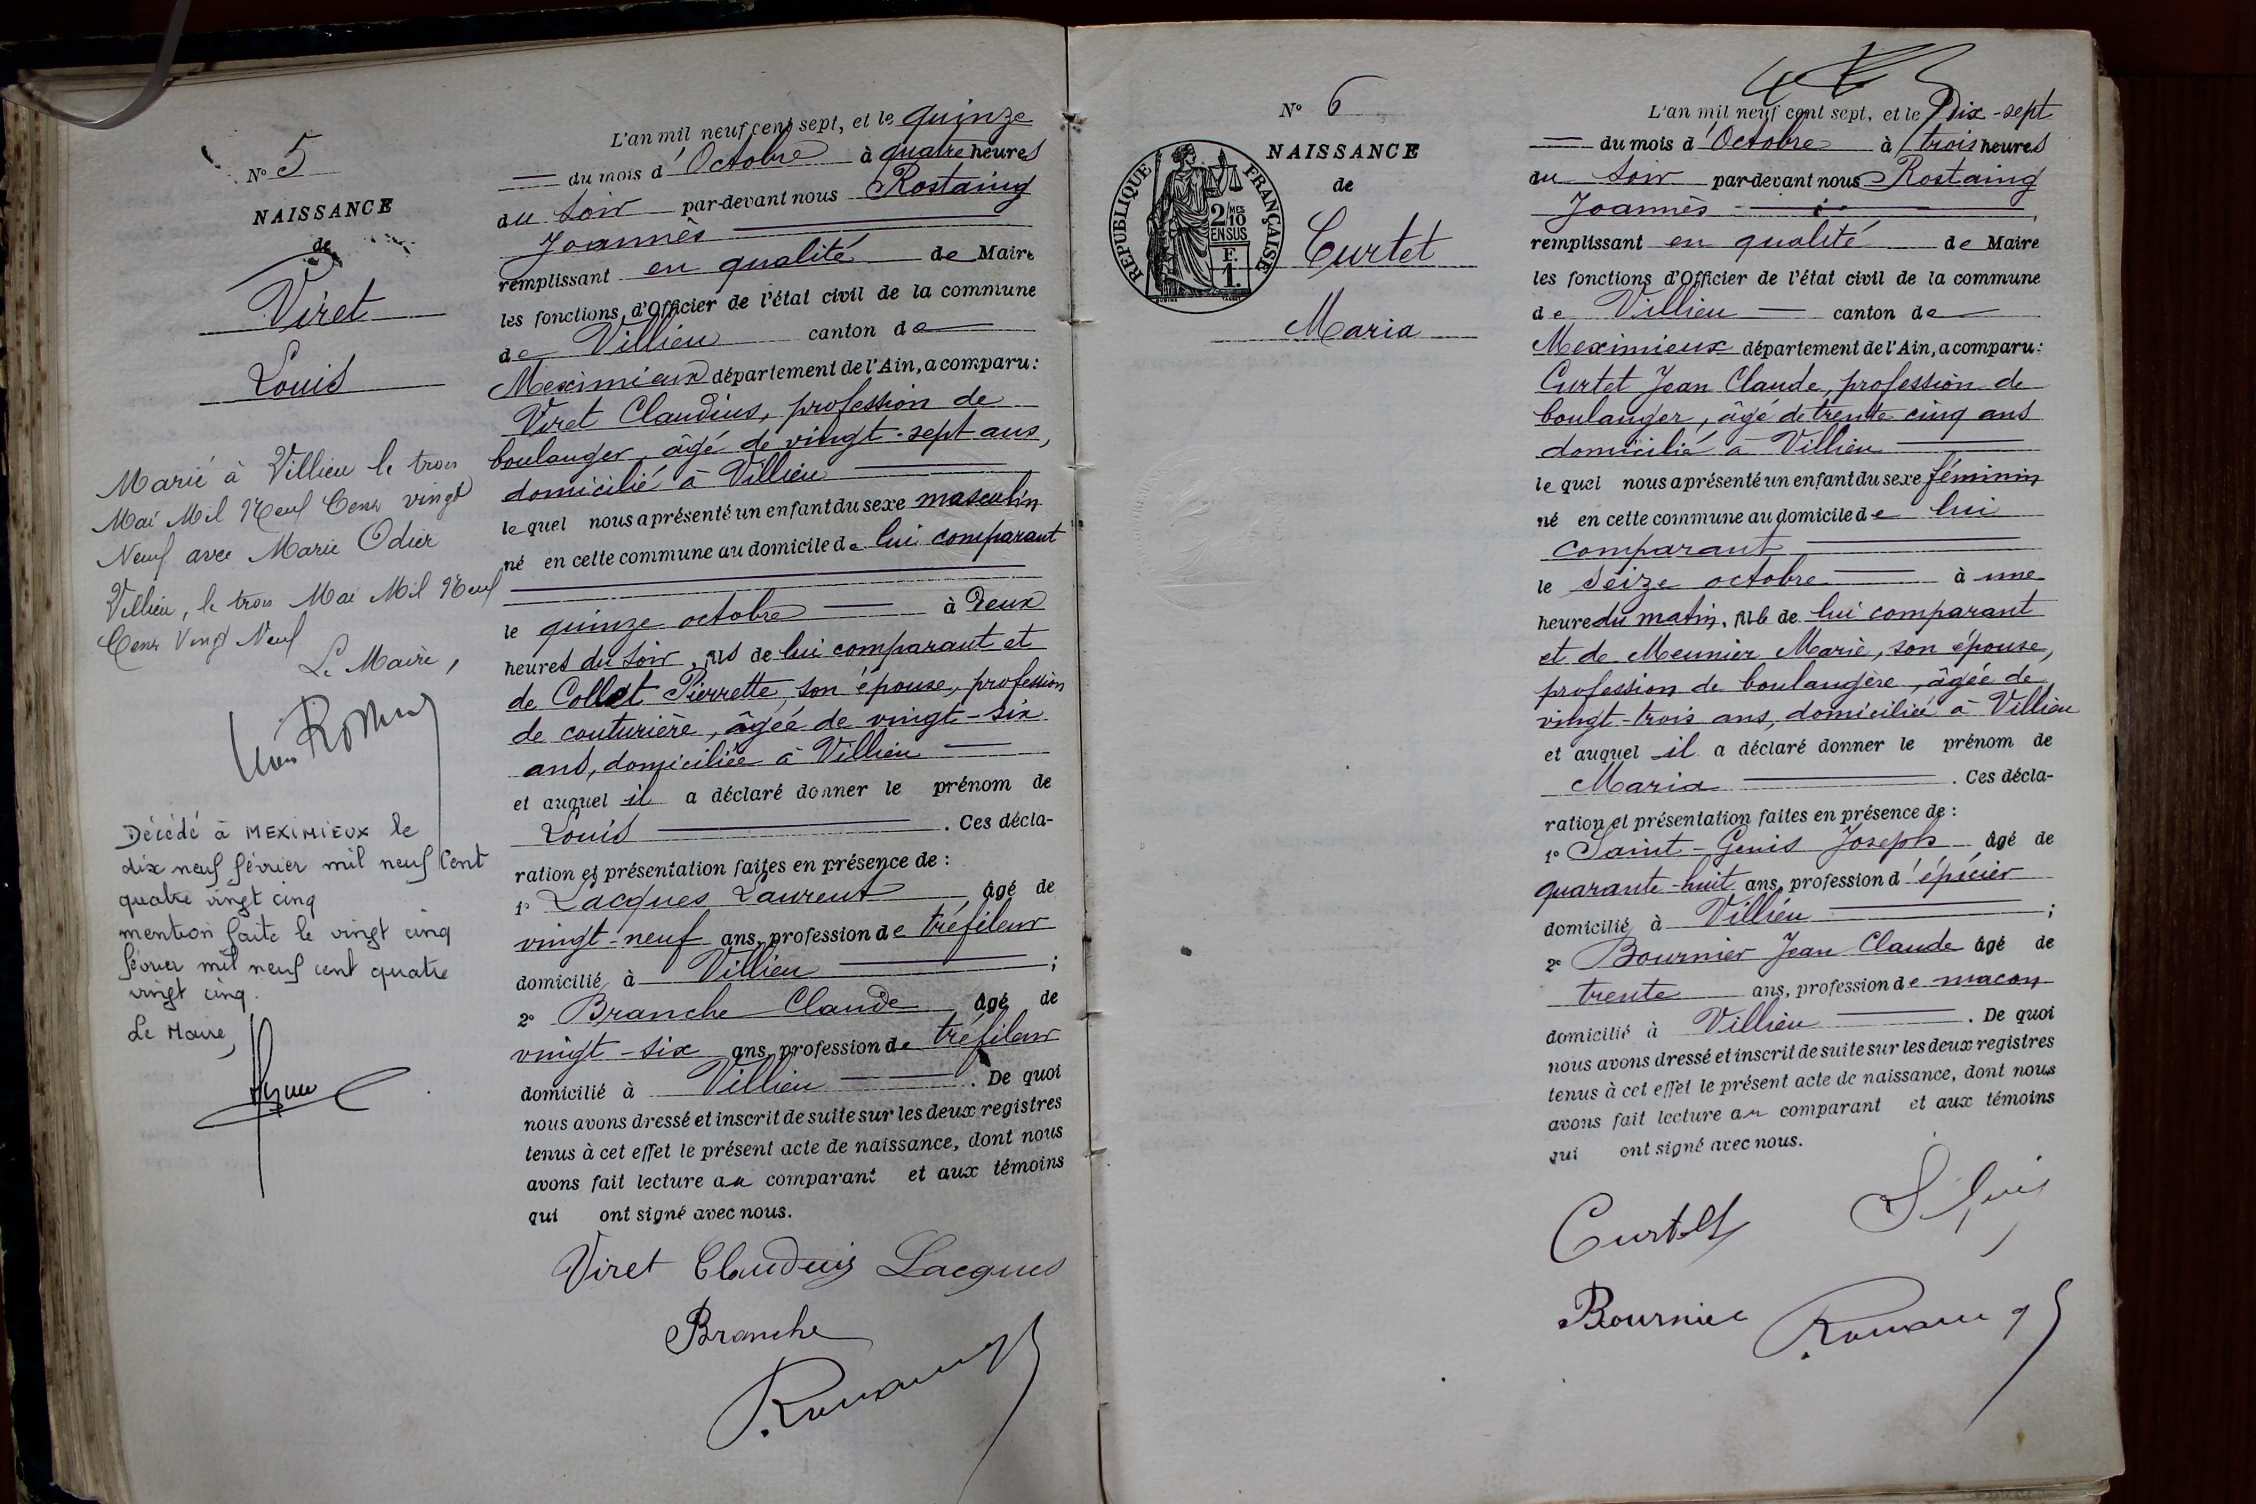 N° 5
NAISSANCE
de
Viret
Louis
Marié à Villieu le trois
Mai Mil Neuf Cent vingt
Neuf avec Marie Odier
Villieu, le trois Mai Mil Neuf
Cent Vingt Neuf
Le Maire,
Décédé à MEXIMIEUX le
dix neuf février mil neuf Cent
quatre vingt cinq
mention faite le vingt cinq
février mil neuf cent quatre
vingt cinq.
Le Maire,
L'an mil neuf cent sept, et le quinze
du mois d'Octobre à quatre heures
du soir par-devant nous Rostaing
Joannès
remplissant en qualité de Maire
les fonctions d'Officier de l'état civil de la commune
de Villieu canton de
Meximieux département de l'Ain, a comparu:
Viret Claudius, profession de
boulanger, âgé de vingt-sept ans,
domicilié à Villieu
lequel nous a présenté un enfant du sexe masculin
né en cette commune au domicile de lui comparant
le quinze octobre à deux
heures du soir, fils de lui comparant et
de Collet Pierrette, son épouse, profession
de couturière, âgée de vingt-six
ans, domiciliée à Villieu
et auquel il a déclaré donner le prénom de
Louis. Ces décla-
ration et présentation faites en présence de :
1° Lacques Laurent âgé de
vingt-neuf ans, profession de tréfileur
domicilié à Villieu ;
2° Branche Claude âgé de
vingt-six ans, profession de tréfileur
domicilié à Villieu. De quoi
nous avons dressé et inscrit de suite sur les deux registres
tenus à cet effet le présent acte de naissance, dont nous
avons fait lecture au comparant et aux témoins
qui ont signé avec nous.
Viret Claudius Lacques
Branche
Rostaing
N° 6
NAISSANCE
de
Curtet
Maria
RÉPUBLIQUE FRANÇAISE
2/10 MES
EN SUS
F.
1.
L'an mil neuf cent sept, et le Dix-sept
du mois d'Octobre à trois heures
du soir par-devant nous Rostaing
Joannès
remplissant en qualité de Maire
les fonctions d'Officier de l'état civil de la commune
de Villieu canton de
Meximieux département de l'Ain, a comparu:
Curtet Jean Claude, profession de
boulanger, âgé de trente cinq ans
domicilié à Villieu
lequel nous a présenté un enfant du sexe féminin
né en cette commune au domicile de lui
comparant
le seize octobre à une
heure du matin, fille de lui comparant
et de Meunier Marie, son épouse,
profession de boulangère, âgée de
vingt-trois ans, domiciliée à Villieu
et auquel il a déclaré donner le prénom de
Maria. Ces décla-
ration et présentation faites en présence de :
1° Saint-Genis Joseph âgé de
quarante-huit ans, profession d'épicier
domicilié à Villieu ;
2° Bournier Jean Claude âgé de
trente ans, profession de maçon
domicilié à Villieu. De quoi
nous avons dressé et inscrit de suite sur les deux registres
tenus à cet effet le présent acte de naissance, dont nous
avons fait lecture au comparant et aux témoins
qui ont signé avec nous.
Curtet
Bournier Rostaing